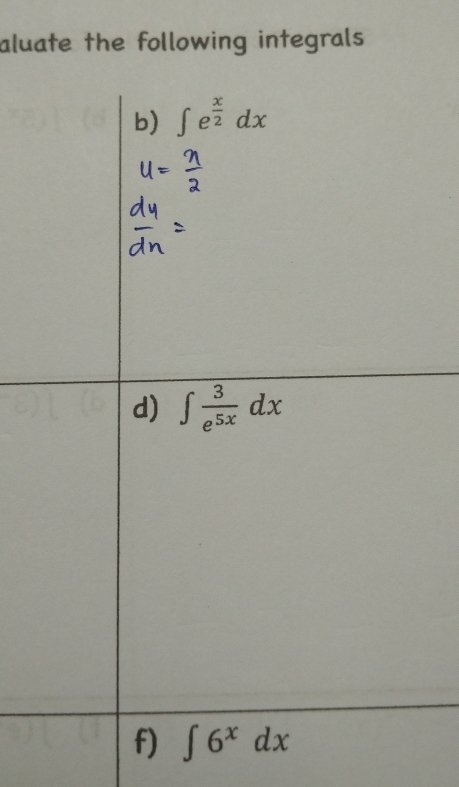 aluate the following integrals
b) ∫ e^{x/2} dx
u = x/2
du/dx =
d) ∫ 3/e^{5x} dx
f) ∫ 6^x dx